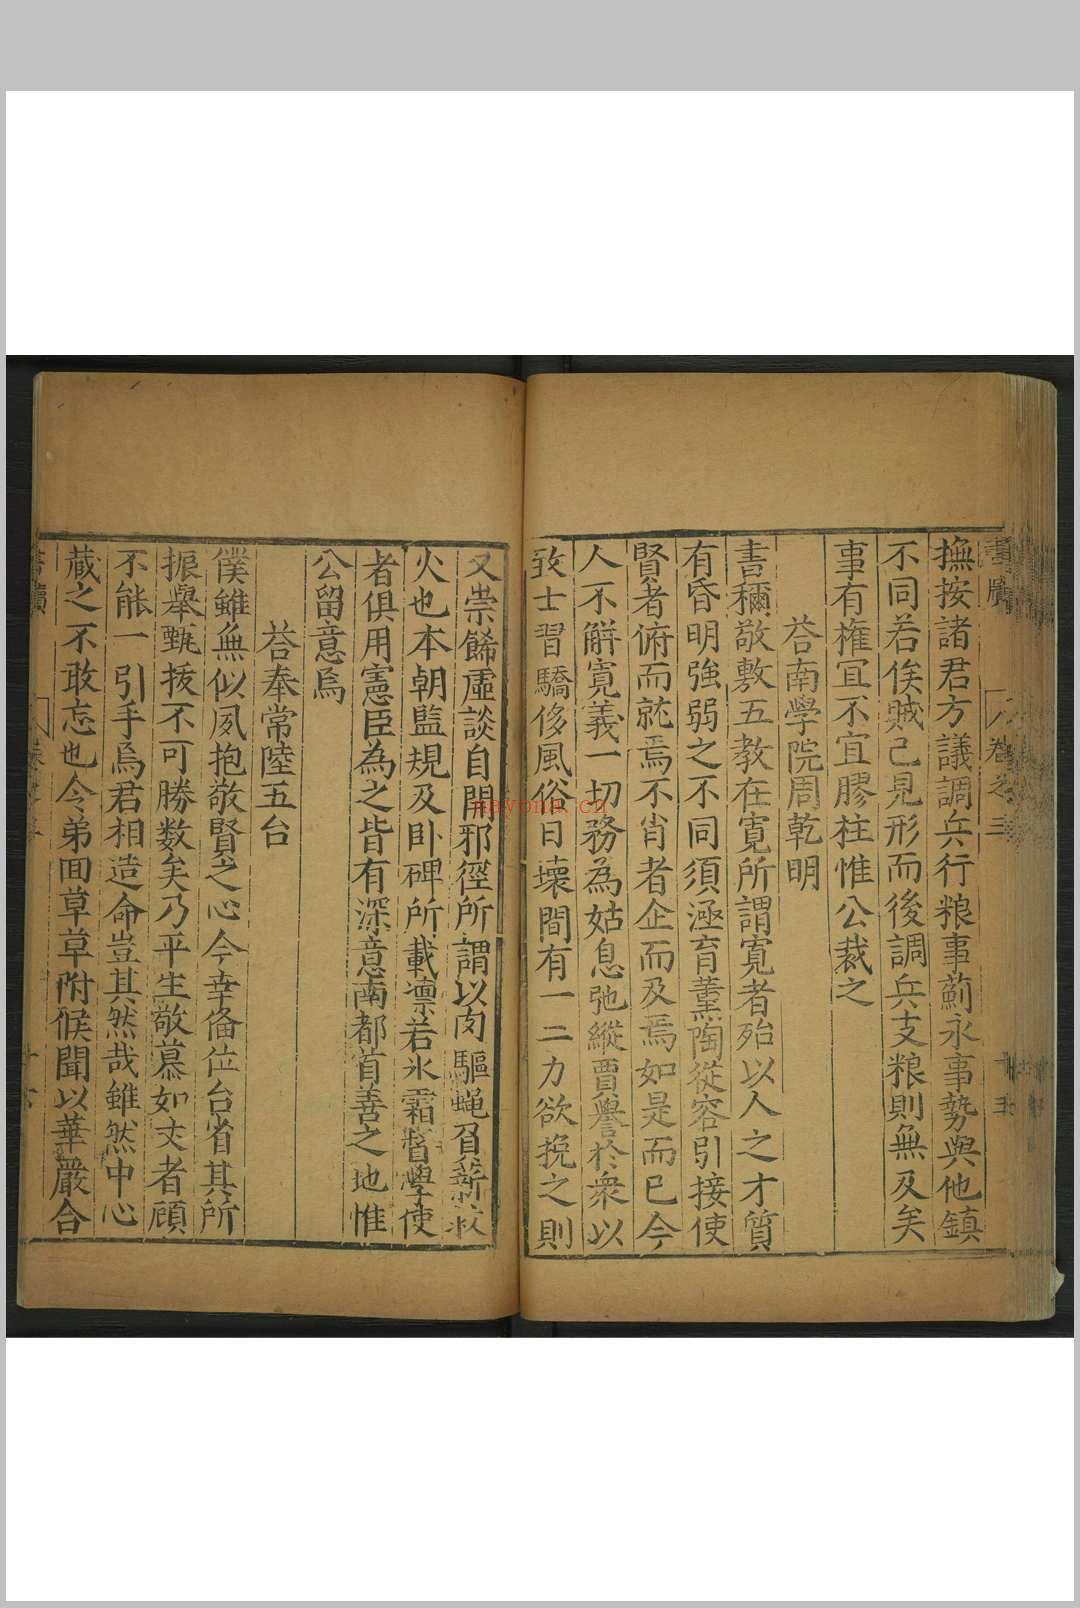 書牘 卷之三 十五
撫按諸君方議調兵行粮事薊永事勢與他鎮
不同若俟賊已見形而後調兵支粮則無及矣
事有權冝不宜膠柱惟公裁之
荅南學院周乾明
書稱敬敷五教在寛所謂寛者殆以人之才質
有昏明強弱之不同須涵育薰陶從容引接使
賢者俯而就焉不肖者企而及焉如是而已今
人不解寛義一切務為姑息弛縱賈譽於衆以
致士習驕侈風俗日壞間有一二力欲挽之則
又崇餙虛談自開邪徑所謂以肉驅蝇負薪救
火也本朝監規及卧碑所載凛若氷霜督學使
者俱用憲臣為之皆有深意南都首善之地惟
公留意焉
荅奉常陸五台
僕雖無似夙抱敬賢之心今幸俻位台省其所
振舉甄拔不可勝数矣乃平生敬慕如丈者顧
不能一引手焉君相造命豈其然哉雖然中心
蔵之不敢忘也令弟囬草草附候聞以華嚴合
書牘
nayona.cn